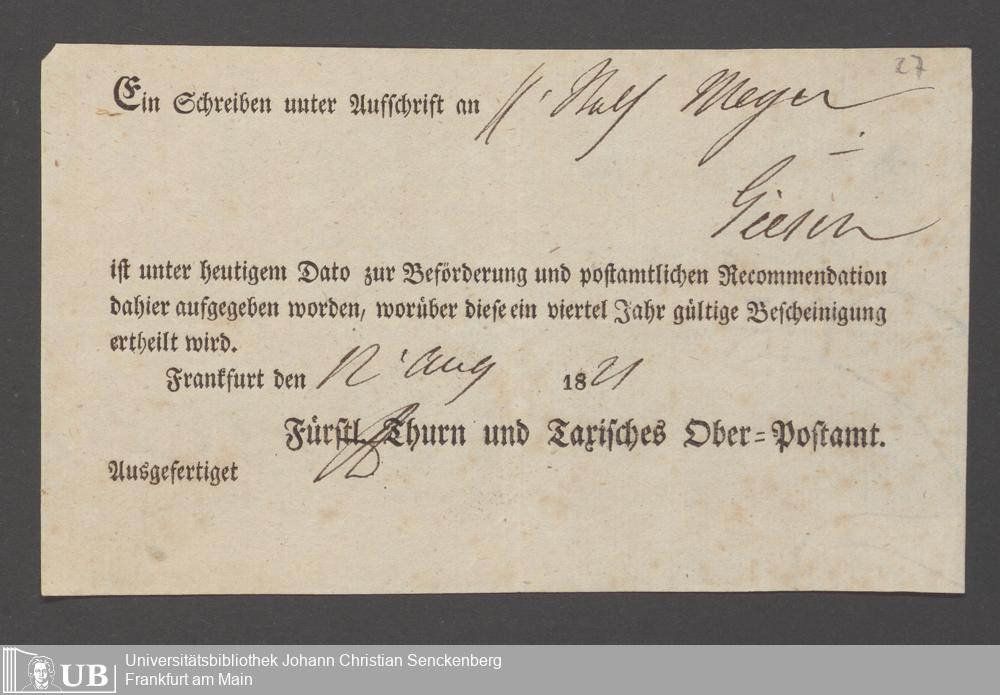 27
Ein Schreiben unter Aufschrift an H. Wolf Meyer
Giesen
ist unter heutigem Dato zur Beförderung und postamtlichen Recommendation
dahier aufgegeben worden, worüber diese ein viertel Jahr gültige Bescheinigung
ertheilt wird.
Frankfurt den 12 Aug 1821
Fürstl. Thurn und Taxisches Ober-Postamt.
Ausgefertiget
UB
Universitätsbibliothek Johann Christian Senckenberg
Frankfurt am Main